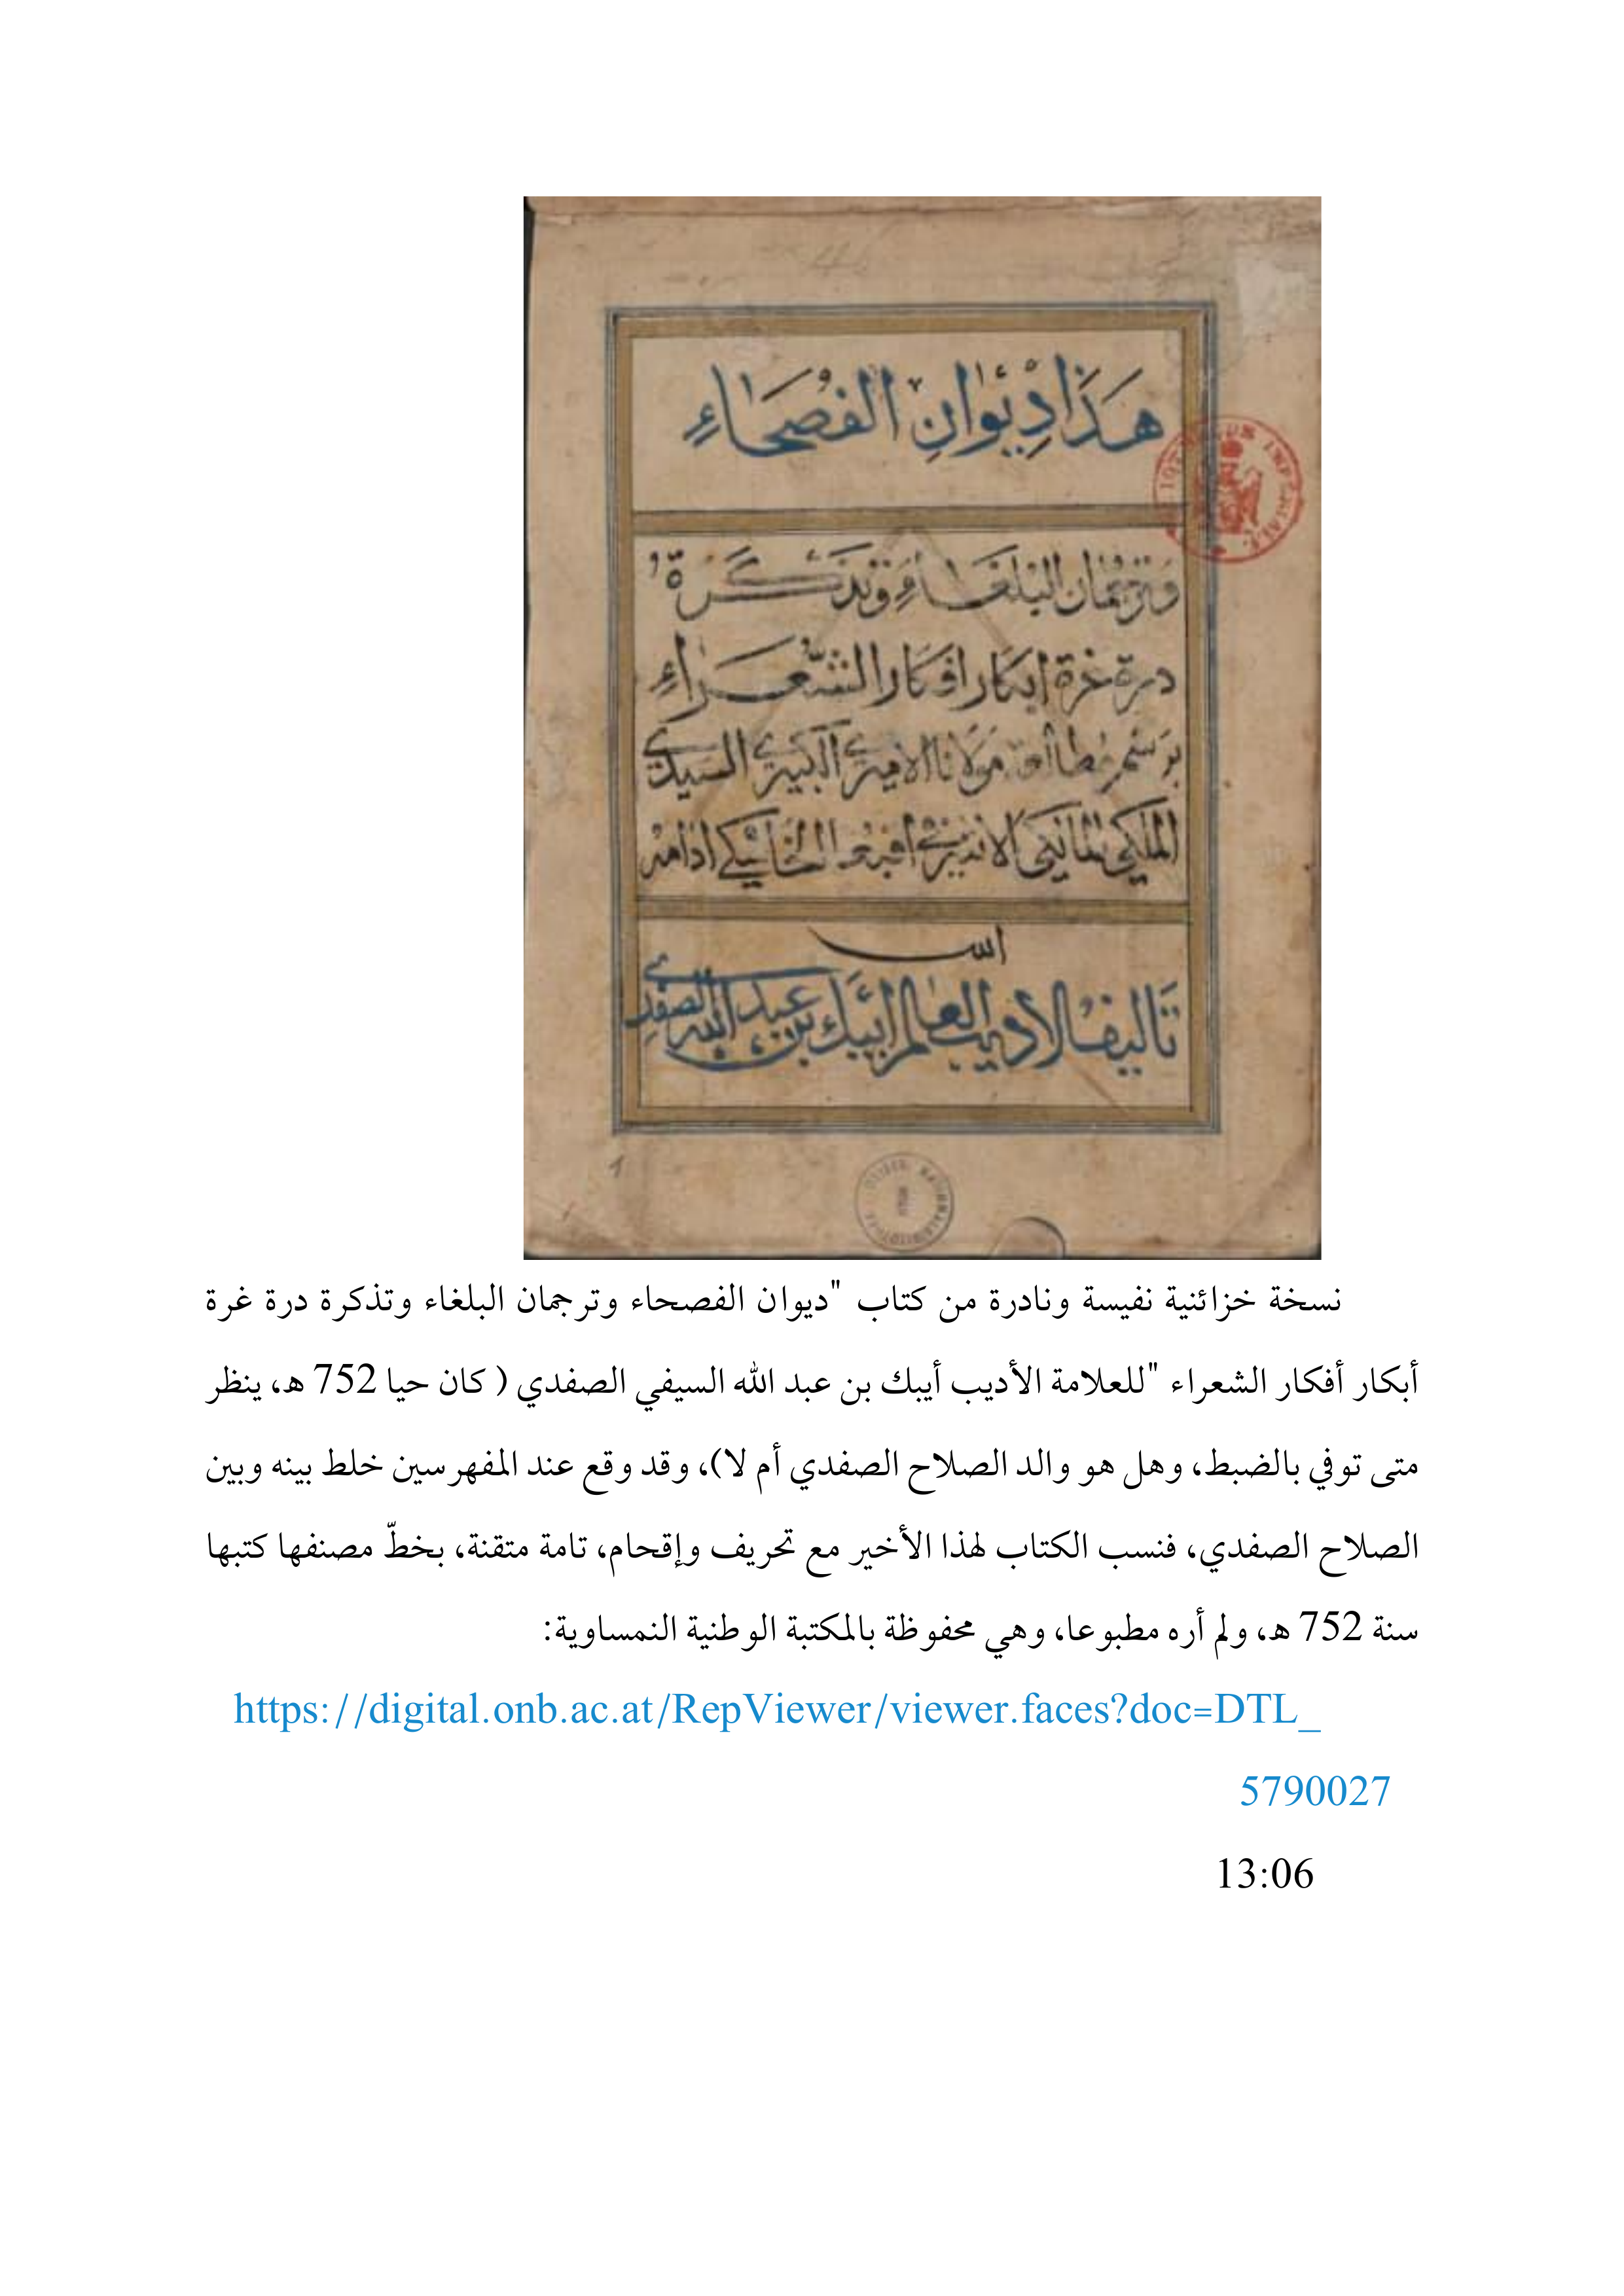 هَذَا دِيْوَانِ الفُصَحَاءِ
وَتَرْجُمَان البُلَغَاءِ وَتَذْكَرَةُ
درة غرة ابكار افكار الشُّعَرَاءِ
بِرَسْمِ مُطالعة مَوْلَانا الاميري الكبيري السيدي
الملكي
ادامه
الله
تَأليف الأديب العالم ايبك بن عبد الله الصفدي
نسخة خزائنية نفيسة ونادرة من كتاب "ديوان الفصحاء وترجمان البلغاء وتذكرة درة غرة
أبكار أفكار الشعراء "للعلامة الأديب أيبك بن عبد الله السيفي الصفدي ( كان حيا 752 هـ، ينظر
متى توفي بالضبط، وهل هو والد الصلاح الصفدي أم لا)، وقد وقع عند المفهرسين خلط بينه وبين
الصلاح الصفدي، فنسب الكتاب لهذا الأخير مع تحريف وإقحام، تامة متقنة، بخطّ مصنفها كتبها
سنة 752 هـ، ولم أره مطبوعا، وهي محفوظة بالمكتبة الوطنية النمساوية:
https://digital.onb.ac.at/RepViewer/viewer.faces?doc=DTL_
5790027
13:06